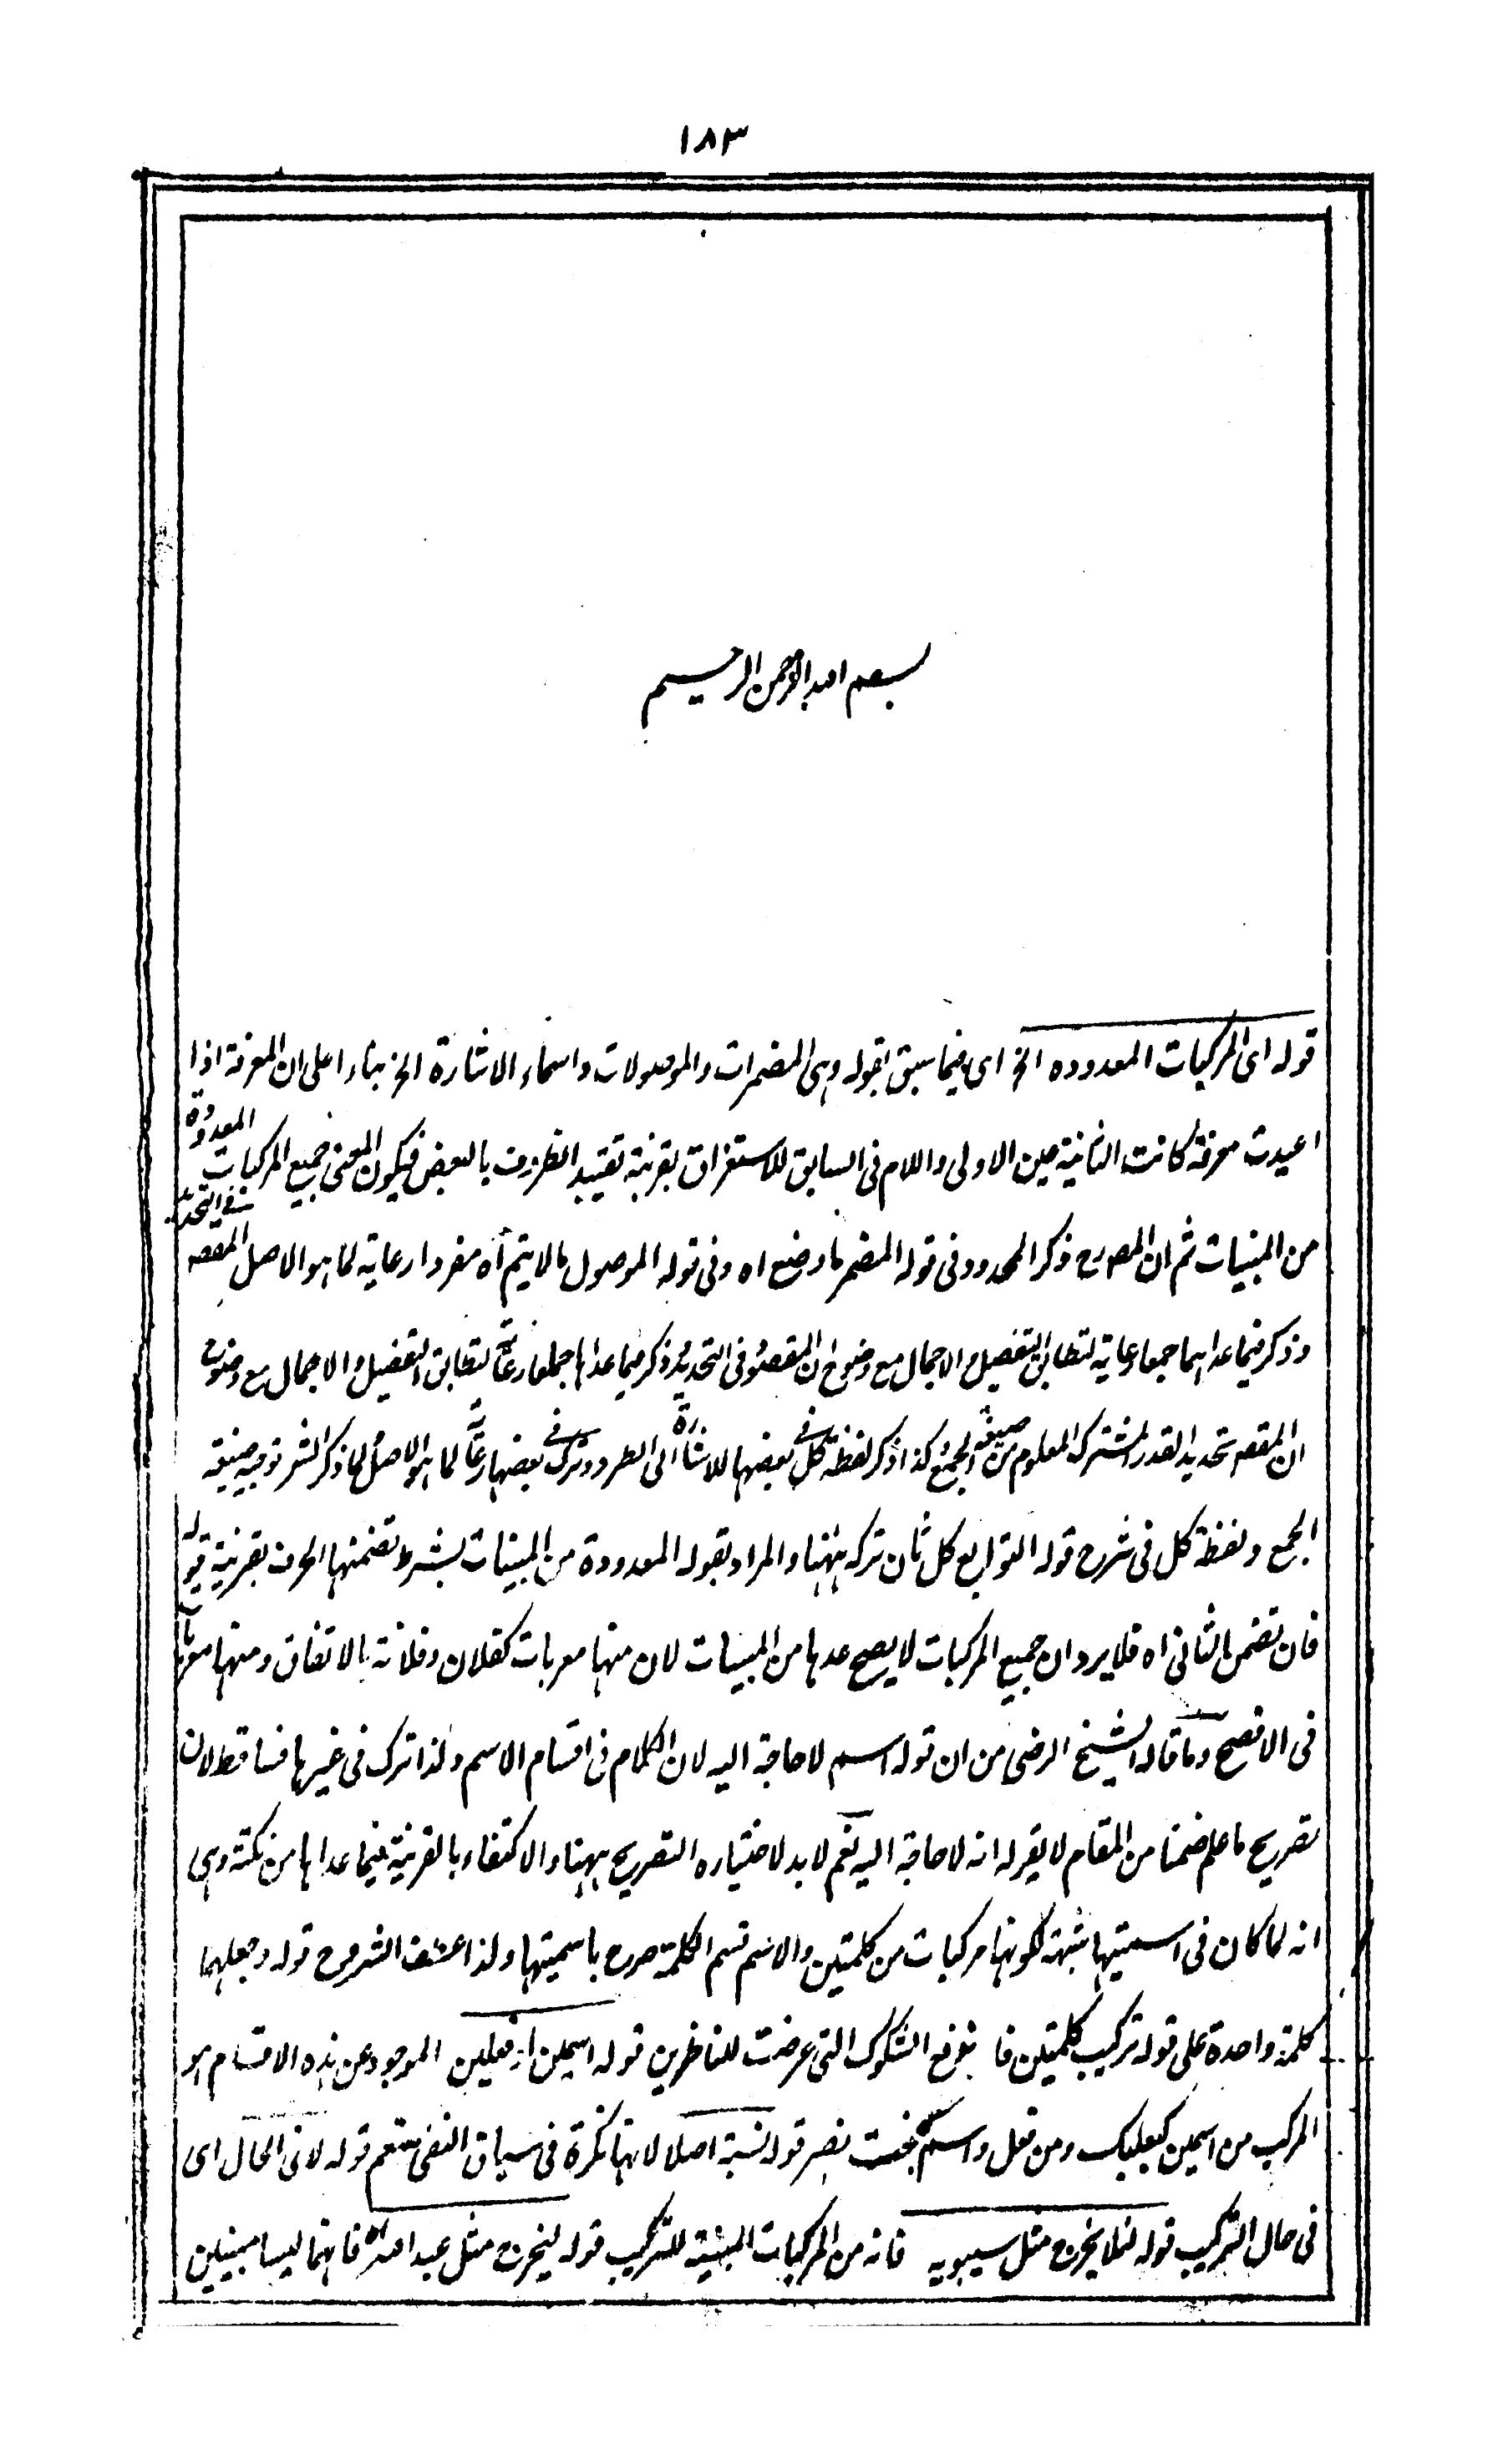 ١٨٣
بسم الله الرحمن الرحيم
قوله اى المركبات المعدوده الخ اى فيما سبق بقوله وهى المضمرات والموصولات واسماء الاشارة الخ بناء اعلى ان المعرفة اذا
اعيدت معرفة كانت الثانية عين الاولى واللام فى السابق للاستغراق بقرينة تقييد الظروف بالبعض فيكون المعنى جميع المركبات المعدودة
من المبنيات ثم ان المصرح ذكر المحدود فى قوله المضمر ما وضع اه وفى قوله الموصول ما لا يتم اه مفردا رعاية لما هو الاصل المقصه فى التحديد
وذكر فيما عداهما جمعا رعاية لتطابق التفصيل والاجمال مع وضوح ان المقصود فى التحديد وذكر فيما عداها جملعا رعاية لتطابق التفصيل والاجمال مع وضوح
ان المقصه تحديد القدر المشترك المعلوم من صيغة الجمع كذا ذكر لفظة كل فى بعضها للاشارة الى الطرد وترك فى بعضها رعاية لما هو الاصل لما ذكر الشر توجيه صيغة
الجمع ولفظة كل فى شرح قوله التوابع كل ثان تركه ههنا والمراد بقوله المعدودة من المبينات بشرط تضمنها الحرف بقرينة قوله
فان تضمن الثانى اه فلا يرد ان جميع المركبات لا يصح عدها من المبنيات لان منها معربات كفلان وفلانة بالاتفاق ومنها معربات
فى الافصح وما قاله الشيخ الرضى من ان قوله اسم لا حاجة اليه لان الكلام فى اقسام الاسم ولذا ترك فى غيرها فساقط لان
تصريح ما علم ضمنا من المقام لا يقر له انه لا حاجة اليه نعم لا بد لاختياره التصريح ههنا والاكتفاء بالقرينة فيما عداها من نكتة وهى
انه لما كان فى اسميتها شبهة لكونها مركبات من كلمتين والاسم قسم الكلمة صرح باسميتها ولذا عطف الشروح قوله وجعلهما
كلمة واحدة على قوله تركيب كلمتين فا ندفع الشكوك التى عرضت للناظرين قوله اسمين او فعلين الموجود عن هذه الاقسام هو
المركب من اسمين كبعلبك ومن فعل واسم كبخت نصر قوله نسبة اصلا لانها نكرة فى سياق النفى فتعم قوله لا فى الحال اى
فى حال التركيب قوله لئلا يخرج مثل سيبويه فانه من المركبات المبنية للتركيب قوله ليخرج مثل عبد الله فانهما ليسا مبنيين